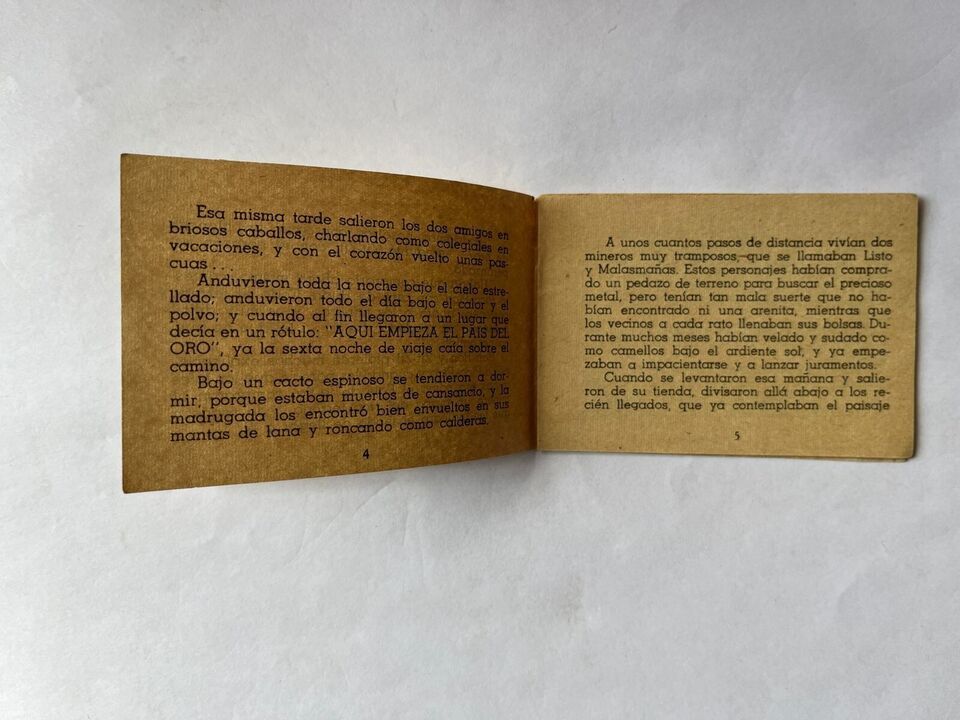 Esa misma tarde salieron los dos amigos en
briosos caballos, charlando como colegiales en
vacaciones, y con el corazón vuelto unas pas-
cuas . . .
Anduvieron toda la noche bajo el cielo estre-
llado; anduvieron todo el día bajo el calor y el
polvo; y cuando al fin llegaron a un lugar que
decía en un rótulo: "AQUI EMPIEZA EL PAIS DEL
ORO", ya la sexta noche de viaje caía sobre el
camino.
Bajo un cacto espinoso se tendieron a dor-
mir, porque estaban muertos de cansancio, y la
madrugada los encontró bien envueltos en sus
mantas de lana y roncando como calderas.
4
A unos cuantos pasos de distancia vivían dos
mineros muy tramposos, que se llamaban Listo
y Malasmañas. Estos personajes habían compra-
do un pedazo de terreno para buscar el precioso
metal, pero tenían tan mala suerte que no ha-
bían encontrado ni una arenita, mientras que
los vecinos a cada rato llenaban sus bolsas. Du-
rante muchos meses habían velado y sudado co-
mo camellos bajo el ardiente sol, y ya empe-
zaban a impacientarse y a lanzar juramentos.
Cuando se levantaron esa mañana y salie-
ron de su tienda, divisaron allá abajo a los re-
cién llegados, que ya contemplaban el paisaje
5